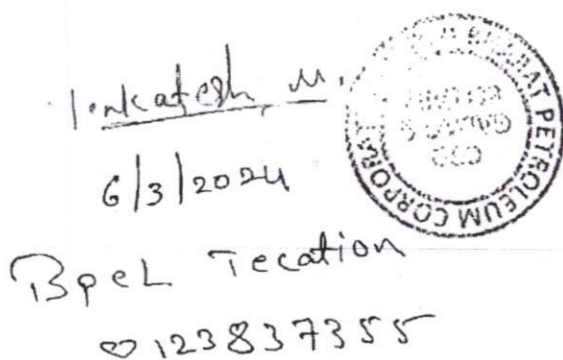 Venkatesh, M.
6/3/2024
BPCL Tecation
9123837355
BHARAT PETROLEUM CORPORAT